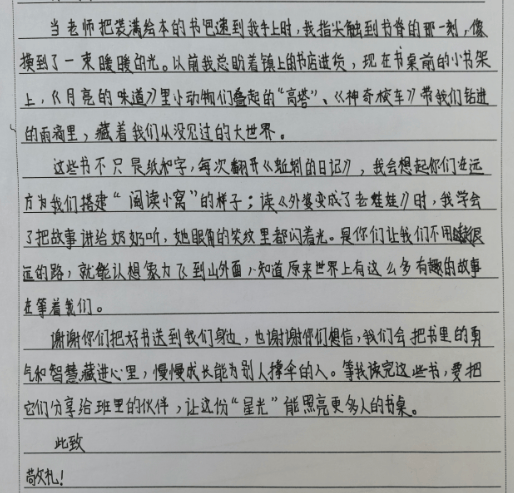 当老师把装满绘本的书包递到我手上时,我指尖触到书脊的那一刻,像
摸到了一束暖暖的光。以前我总盼着镇上的书店进货,现在书桌前的小书架
上,《月亮的味道》里小动物们叠起的“高塔”、《神奇校车》带我们钻进
的雨滴里,藏着我们从没见过的大世界。
这些书不只是纸和字,每次翻开《蚯蚓的日记》,我会想起你们在远
方为我们搭建“阅读小窝”的样子;读《外婆变成了老娃娃》时,我学会
了把故事讲给奶奶听,她眼角的笑纹里都闪着光。是你们让我们不用走很
远的路,就能让想象力飞到山外面,知道原来世界上有这么多有趣的故事
在等着我们。
谢谢你们把好书送到我们身边,也谢谢你们相信,我们会把书里的勇
气和智慧藏进心里,慢慢成长能为别人撑伞的人。等我读完这些书,要把
它们分享给班里的伙伴,让这份“星光”能照亮更多人的书桌。
此致
敬礼!